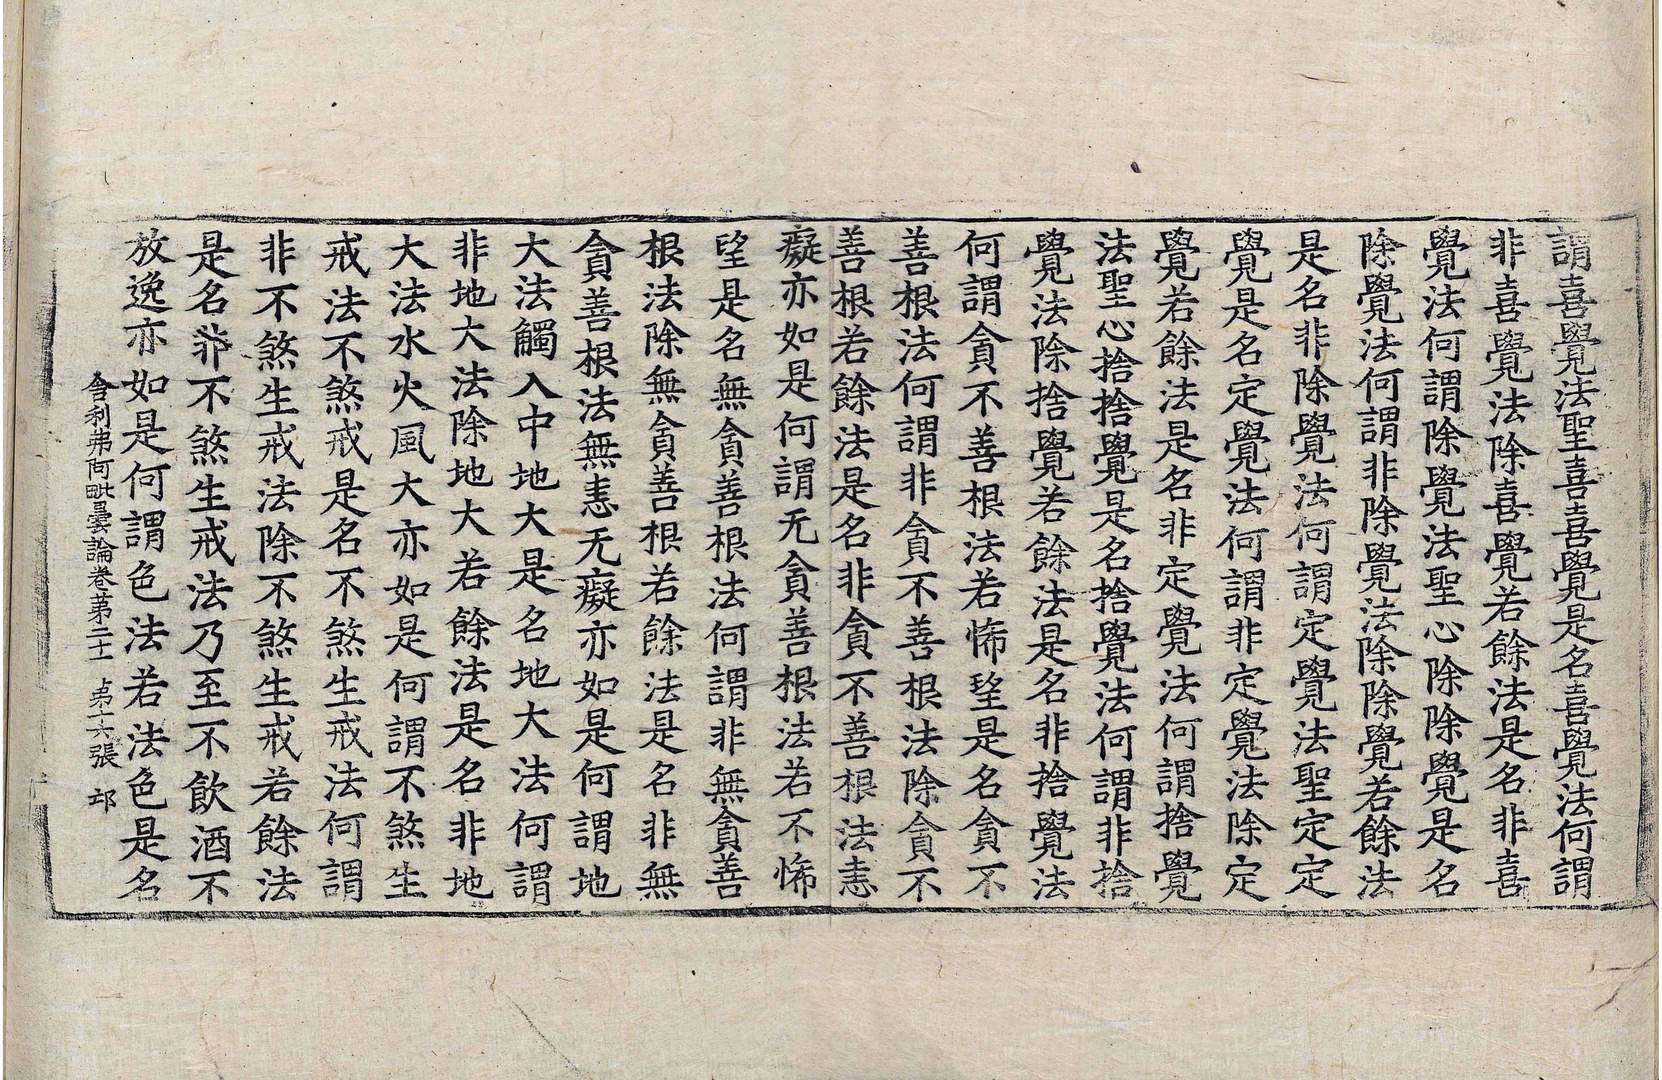 謂喜覺法聖喜喜覺是名喜覺法何謂
非喜覺法除喜覺若餘法是名非喜
覺法何謂除覺法聖心除除覺是名
除覺法何謂非除覺法除除覺若餘法
是名非除覺法何謂定覺法聖定定
覺是名定覺法何謂非定覺法除定
覺若餘法是名非定覺法何謂捨覺
法聖心捨捨覺是名捨覺法何謂非捨
覺法除捨覺若餘法是名非捨覺法
何謂貪不善根法若悕望是名貪不
善根法何謂非貪不善根法除貪不
善根若餘法是名非貪不善根法恚
癡亦如是何謂无貪善根法若不悕
望是名無貪善根法何謂非無貪善
根法除無貪善根若餘法是名非無
貪善根法無恚无癡亦如是何謂地
大法觸入中地大是名地大法何謂
非地大法除地大若餘法是名非地
大法水火風大亦如是何謂不煞生
戒法不煞戒是名不煞生戒法何謂
非不煞生戒法除不煞生戒若餘法
是名非不煞生戒法乃至不飲酒不
放逸亦如是何謂色法若法色是名
舍利弗阿毗曇論卷第二十一 第十六張 邛